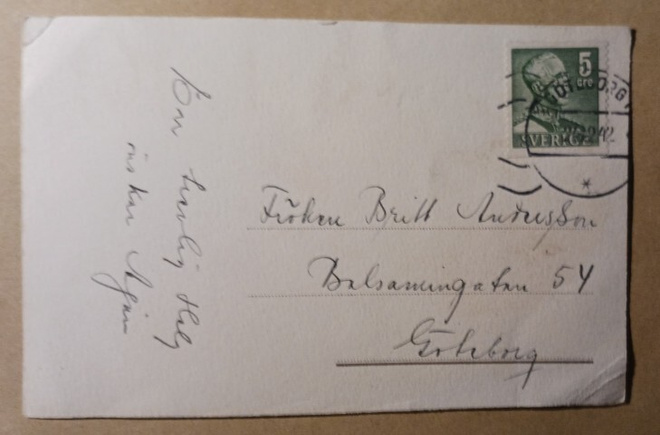 5
öre
SVERIGE
GÖTEBORG
En trevlig Helg
önskar
Fröken Britt Andersson
Balsamingatan 54
Göteborg